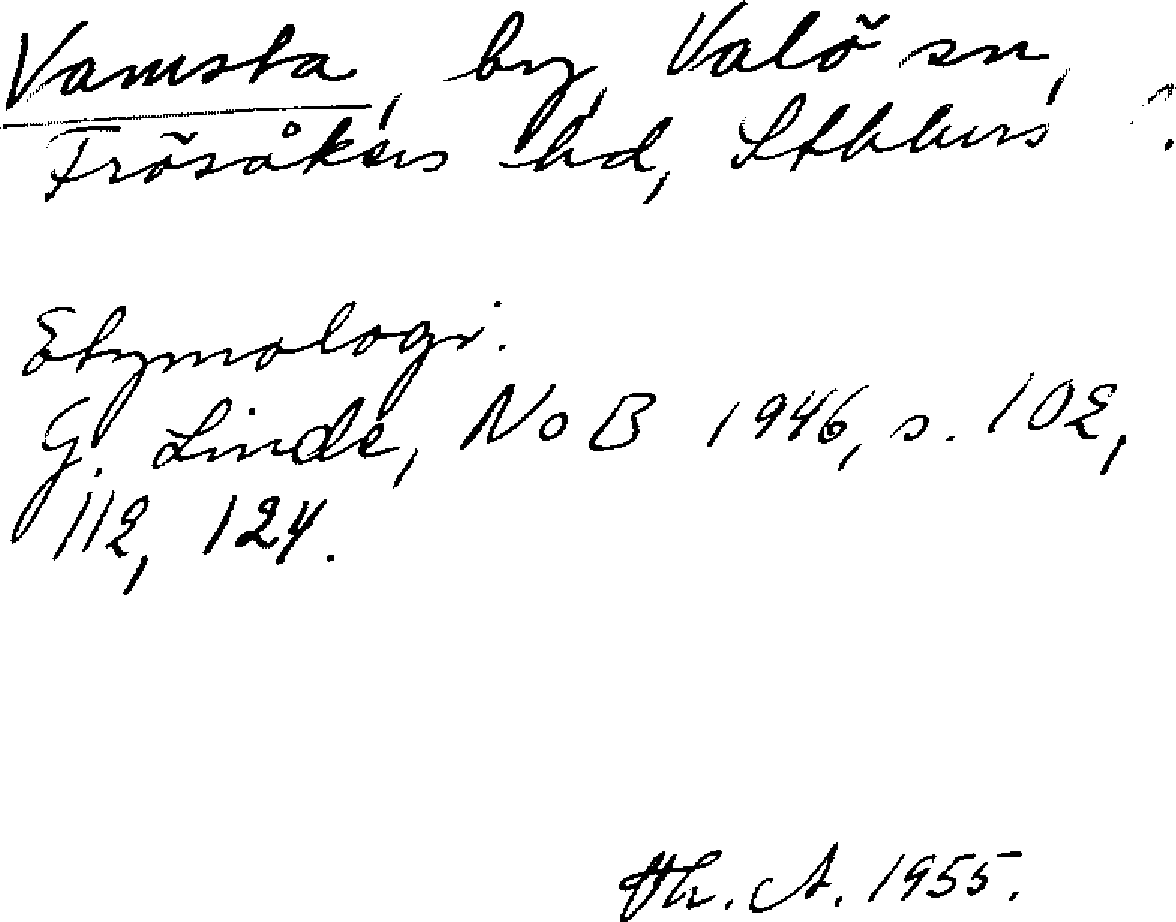 Vamsta, by, Valö sn,
Frösåkers hd, Sthlms
Etymologi.
G. Linde, NoB 1946, s. 102,
112, 124.
A. 1955.